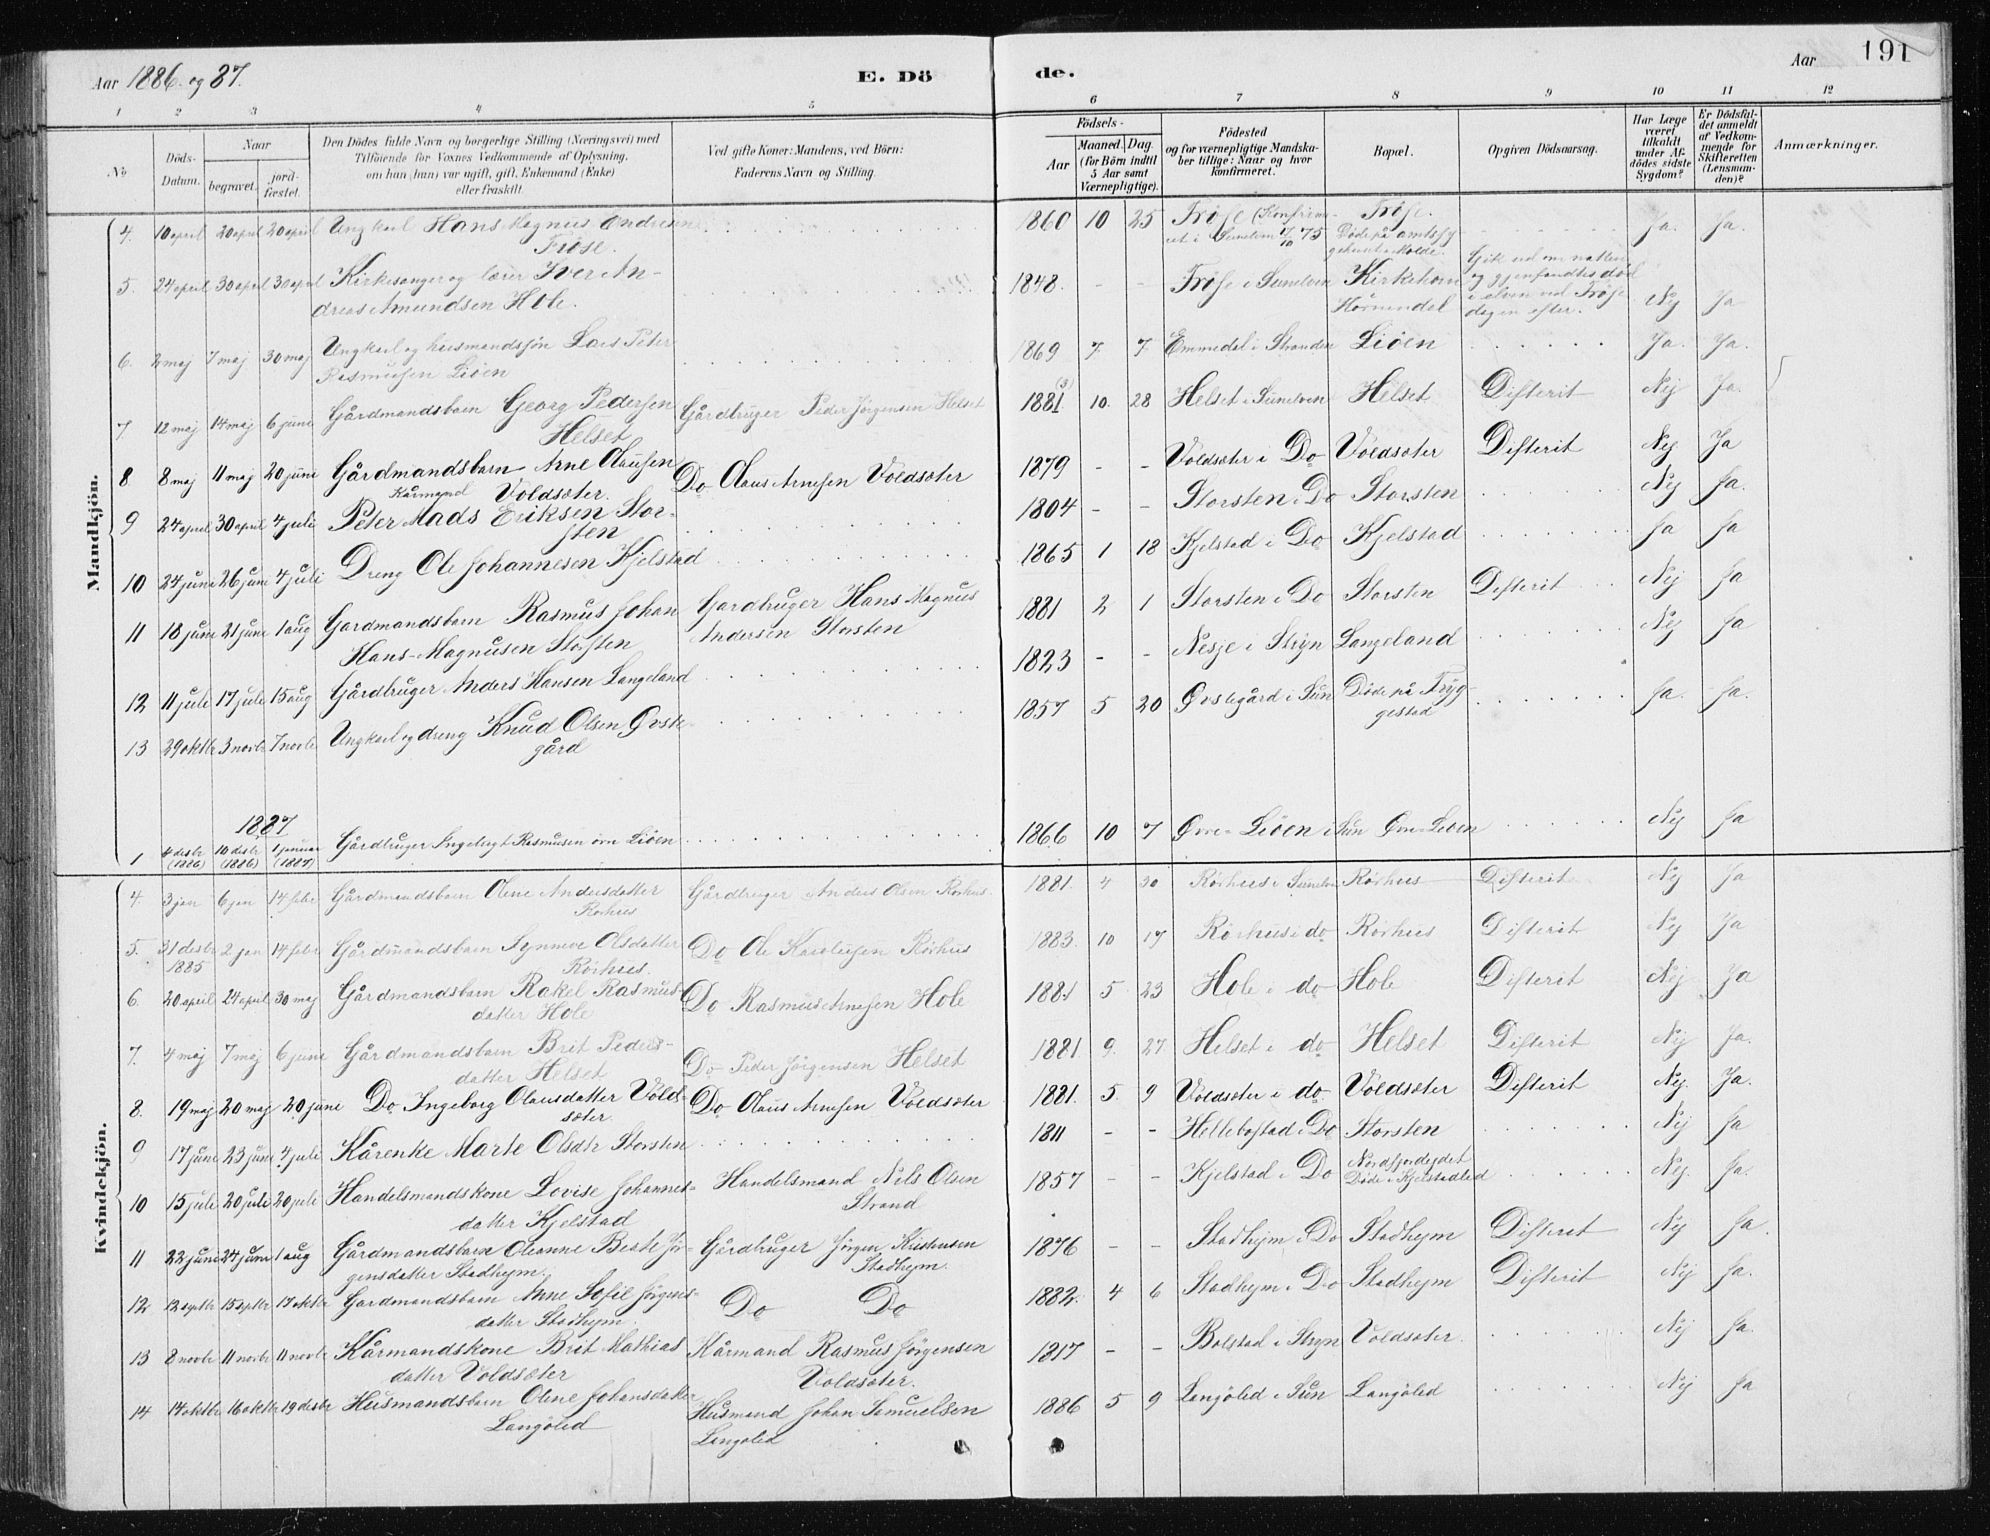 Aar 1886 og 87.
E. Döde.
Aar
191
1 2 3 4 5 6 7 8 9 10 11 12
No
Döds-Datum.
Naar
begravet.
jord-fæstet.
Den Dödes fulde Navn og borgerlige Stilling (Næringsvei) med
Tilföiende for Voxnes Vedkommende af Oplysning,
om han (hun) var ugift, gift, Enkemand (Enke)
eller fraskilt.
Ved gifte Koner: Mandens, ved Börn:
Faderens Navn og Stilling.
Födsels-
Aar
Maaned. Dag.
(for Börn indtil
5 Aar samt
Værnepligtige).
Födested
og for værnepligtige Mandska-
ber tillige: Naar og hvor
konfirmeret.
Bopæl.
Opgiven Dödsaarsag.
Har Læge
været
tilkaldt
under Af-
dödes sidste
Sygdom?
Er Dödsfal-
det anmeldt
af Vedkom-
mende for
Skifteretten
(Lensman-
den)?
Anmærkninger.
Mandkjön.
4. 10 april 20 april 20 april Ungkarl Hans Magnus Andresen Fröse. 1860 10 25 Fröse (Konfirmeret i Sunelven 17/10 75 Fröse. Döde på amtssygehuset i Molde. Ja. Ja.
5. 24 april 30 april 30 april Kirkesanger og lærer Iver Andreas Amundsen Hole. 1848. - - Fröse i Sunelven Kirkehorn Hornindal Gik ud om natten og gjenfandtes död i elven ved Fröse dagen efter. Nej Ja
6. 2 maj 7 maj 30 maj Ungkarl og husmandssön Lars Peter Rasmusen Liöen 1869 7 7 Emmedal i Stranden Liöen Ja. Ja.
7. 12 maj 14 maj 6 juni Gårdmandsbarn Georg Pedersen Helset Gårdbruger Peder Jörgensen Helset 1881 10. 28 Helset i Sunelven Helset Difterit Nej Ja.
8 8 maj 11 maj 20 juni Gårdmandsbarn Arne Olausen Voldsæter. Do Olaus Arnesen Voldsæter 1879 - - Voldsæter i Do Voldsæter Difterit Nej Ja
9 24 april 30 april 4 juli Kårmand Peter Mads Eriksen Storsten 1804 - - Storsten i Do Storsten Nej Ja.
10 24 juni 26 juni 4 juli Dreng Ole Johannesen Kjelstad 1865 1 18 Kjelstad i Do Kjelstad Ja Ja
11 18 juni 21 juni 1 aug Gardmandsbarn Rasmus Johan Hans-Magnusen Storsten Gardbruger Hans Magnus Andersen Storsten 1881 2 1 Storsten i Do Storsten Difterit Nej Ja
12 11 juli 17 juli 15 aug Gårdbruger Anders Hansen Langeland 1823 - - Nesje i Stryn Langeland Nej Ja
13 29 oktbr 3 novbr 7 novbr Ungkarl og dreng Knud Olsen Övstegård 1857 5 20 Övstegård i Sun Döde på Tryggestad Ja. Ja.
1887
1 4 desbr (1886) 10 desbr (1886) 1 januar (1887) Gårdbruger Ingebrigt Rasmusen övre Liöen 1866 10 7 Övre-Liöen i Sun Övre-Liöen Nej Ja
Kvindekjön.
4. 3 jan 6 jan 14 febr Gårdmandsbarn Oline Andersdatter Rörhus Gårdbruger Anders Olsen Rörhus. 1881. 4 30 Rörhus i Sunelven Rörhus Difterit Nej Ja
5. 31 desbr 1885 2 jan 14 febr Gårdmandsbarn Synneve Olsdatter Rörhus. Do Ole Karolusen Rörhus 1883. 10 17 Rörhus i do Rörhus Difterit Nej Ja
6. 20 april 24 april 30 maj Gårdmandsbarn Rakel Rasmusdatter Hole Do Rasmus Arnesen Hole 1881 5 23 Hole i do Hole Difterit Nej Ja
7. 4 maj 7 maj 6 juni Gårdmandsbarn Brit Pedersdatter Helset Do Peder Jörgensen Helset 1881 9. 27 Helset i do Helset Difterit Nej Ja.
8. 19 maj 20 maj 20 juni Do Ingeborg Olausdatter Voldsæter. Do Olaus Arnesen Voldsæter 1881. 5. 9 Voldsæter i do Voldsæter Difterit Nej. Ja.
9 17 juni 23 juni 4 juli Kårenke Marte Olsdtr Storsten 1811 - - Hellebostad i Do Storsten Nej Ja
10 15 juli 20 juli 20 juli Handelsmandskone Lovise Johannesdatter Kjelstad Handelsmand Nils Olsen Strand 1857 - - Kjelstad i Do Nordfjordejdet Döde i Kjelstadlid Nej. Ja.
11 22 juni 24 juni 1 aug Gårdmandsbarn Oleanne Beate Jörgensdatter Stadhejm. Gårdbruger Jörgen Stadhejm. 1876 - - Stadhejm i Do Stadhejm Difterit Nej Ja.
12 12 septbr 15 septbr 17 oktbr Gardmandsbarn Anne Sofie Jörgensdatter Stadhejm. Do Do 1882. 4 6 Stadhejm i Do Stadhejm Difterit Nej Ja.
13 8 novbr 11 novbr 11 novbr Kårmandskone Brit Mathiasdatter Voldsæter Kårmand Rasmus Jörgensen Voldsæter. 1817 - - Bolstad i Stryn Voldsæter. Nej Ja.
14 14 oktbr 16 oktbr 19 desbr Husmandsbarn Oline Johansdatter Langölid Husmand Johan Samuelsen Langölid 1886 5 9 Langölid i Sun Langölid Nej Ja